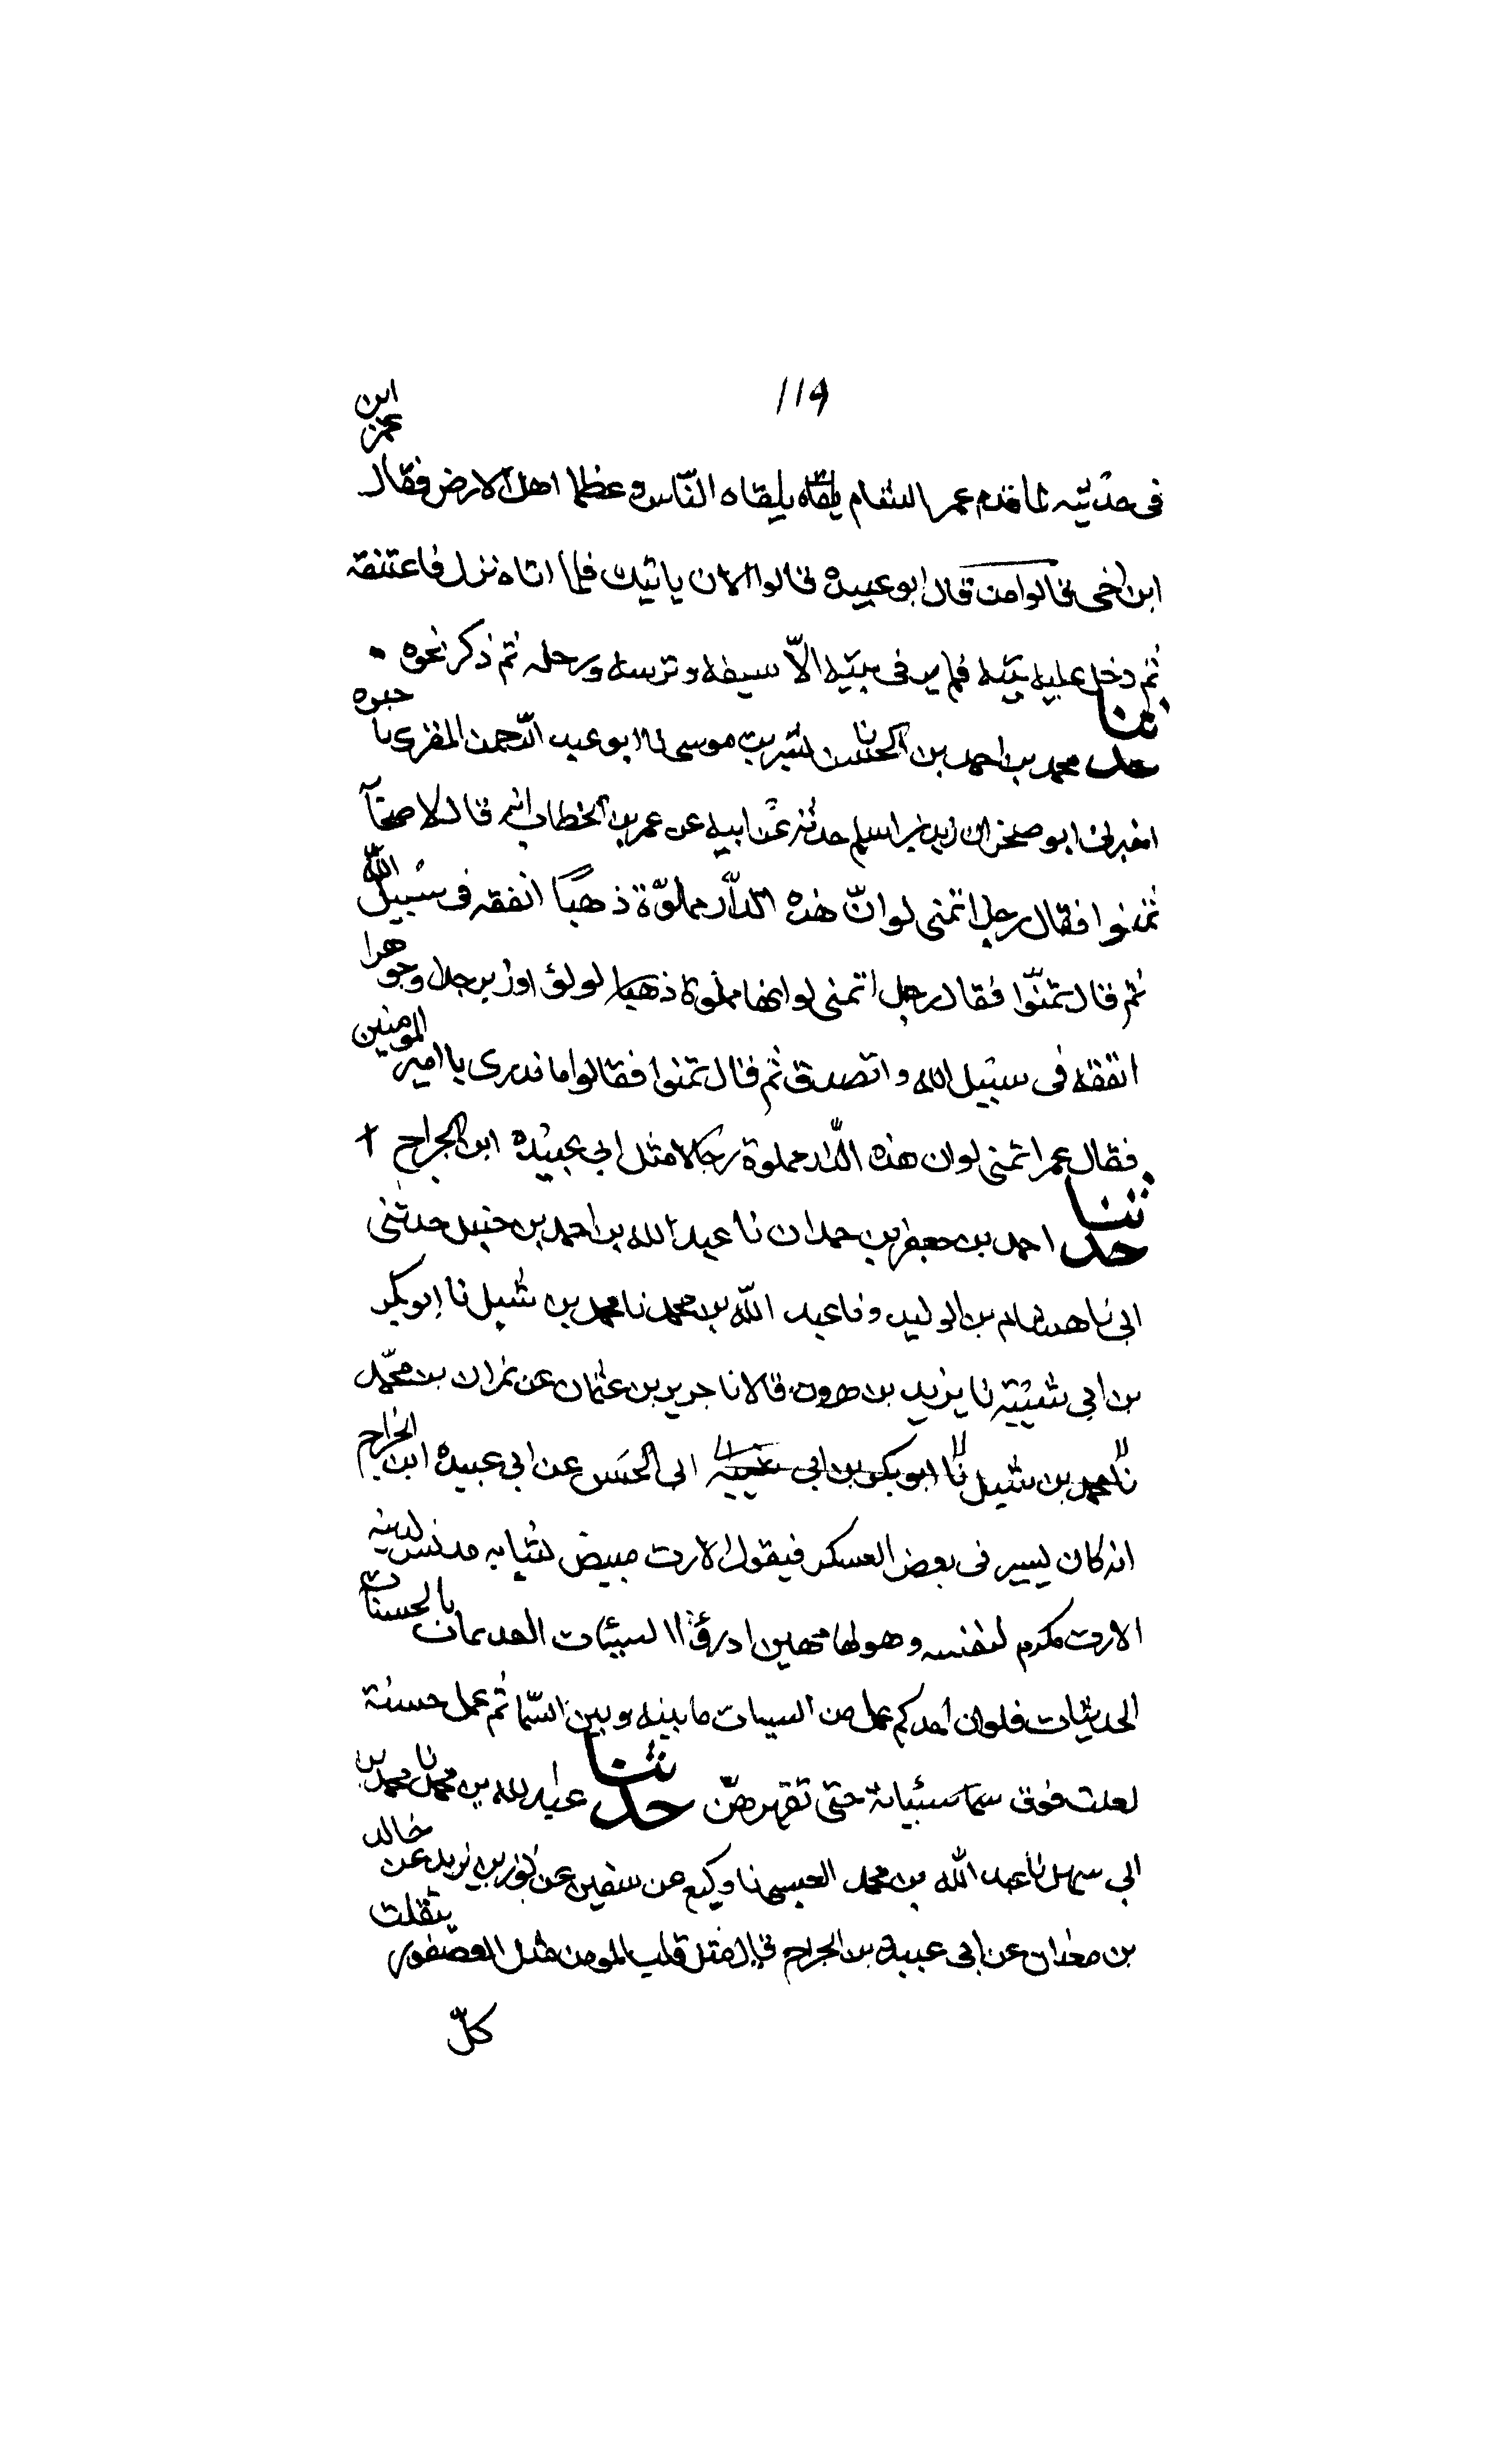 119
في حديثه لما قدم عمر الشام يلقاه يلقاه الناس وعظما اهل الارض فقال
ابن عمر
ابن اخي قالوا من قال ابو عبيدة قالوا الان ياتيك فلما اتاه نزل فاعتنقه
ثم دخل عليه بيته فلم ير في بيته الّا سيفه وترسه ورحله ثم ذكر نحوه
حدثنا محمد بن احمد بن الحسن نا بشر بن موسى نا ابو عبد الرّحمن المقرى نا حيوه
اخبرني ابو صخر ان زيد بن اسلم حدثه عن ابيه عن عمر بن الخطاب انه قال لاصحابه
تمنوا فقال رجل اتمنى لو انّ هذه الدّار مملوّة ذهبًا انفقه في سبيل اللّه
ثم قال تمنّوا فقال رجل اتمنى لو انها مملوة لولؤ او زبرجدا وجوهرا
انفقه في سبيل الله واتصدق ثم قال تمنوا فقالوا ما ندرى يا امير المومنين
فقال عمر اتمنى لو ان هذه الدّار مملوة رجالا مثل ابي عبيدة ابن الجراح
حدثنا احمد بن جعفر بن حمدان نا عبد الله بن احمد بن حنبل حدثنى
ابي نا هشام بن الوليد ونا عبد اللّه بن محمد نا محمد بن شبل نا ابو بكر
بن ابي شيبة نا يزيد بن هرون قالا نا جرير بن عثمان عن نمران بن محمّد
نا محمد بن شبل نا ابو بكر بن ابي شيبة ابى الحسن عن ابي عبيدة ابن الجراح
انه كان يسير في بعض العسكر فيقول الارب مبيض لثيابه مدنس لدينه
الارب مكرم لنفسه وهو لها مهين ادرؤا السيئات القديمات بالحسنات
الحديثات فلو ان احدكم عمل من السيات ما بينه وبين السّما ثم عمل حسنة
لعلت فوق سيئاته حتى تقهرهنّ حدثنا عبد الله بن محمد نا محمد بن
ابي سهل نا عبد الله بن محمد العبسي نا وكيع عن سفين عن ثور بن يزيد عن خالد
بن معدان عن ابي عبيدة بن الجراح قال مثل قلب المومن مثل العصفور يتقلب
كلّ